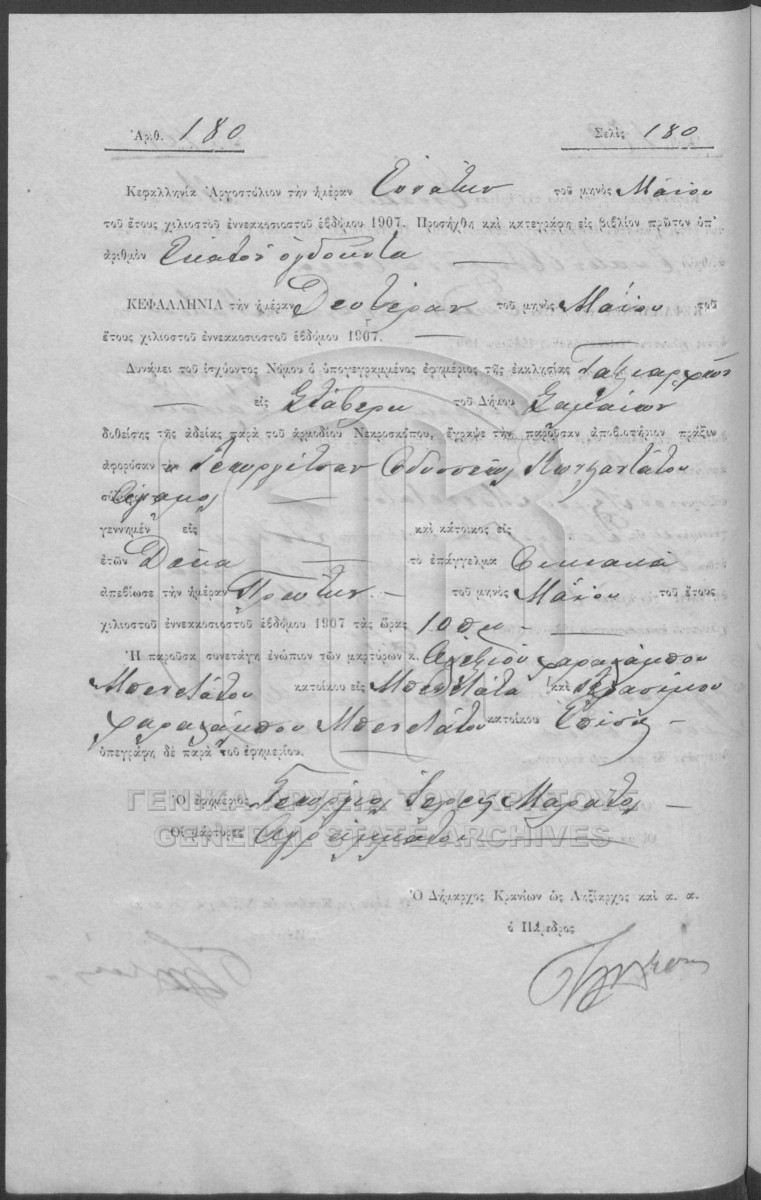 Ἀριθ. 180 Σελὶς 180
Κεφαλληνία Ἀργοστόλιον τὴν ἡμέραν Ἐννάτην τοῦ μηνὸς Μαΐου
τοῦ ἔτους χιλιοστοῦ ἐννεακοσιοστοῦ ἑβδόμου 1907. Προσήχθη καὶ κατεγράφη εἰς βιβλίον πρῶτον ὑπ'
ἀριθμὸν Ἑκατὸν ὀγδοήντα —
ΚΕΦΑΛΛΗΝΙΑ τὴν ἡμέραν Δευτέραν τοῦ μηνὸς Μαΐου τοῦ
ἔτους χιλιοστοῦ ἐννεακοσιοστοῦ ἑβδόμου 1907. —
Δυνάμει τοῦ ἰσχύοντος Νόμου ὁ ὑπογεγραμμένος ἐφημέριος τῆς ἐκκλησίας Ταξιαρχῶν
— εἰς τοῦ Δήμου Σαμαίων
δοθείσης τῆς ἀδείας παρὰ τοῦ ἁρμοδίου Νεκροσκόπου, ἔγραψε τὴν παροῦσαν ἀποβιωτήριον πράξιν
ἀφορῶσαν τ Γεωργίτσαν Ὀδυσσέως
Ἄγαμος —
γεννημέν εἰς καὶ κάτοικος εἰς
ἐτῶν Δέκα — τὸ ἐπάγγελμα Οἰκιακά
ἀπεβίωσε τὴν ἡμέραν Πρώτην — τοῦ μηνὸς Μαΐου τοῦ ἔτους
χιλιοστοῦ ἐννεακοσιοστοῦ ἑβδόμου 1907 τὰς ὥρας 10 πμ —
Ἡ παροῦσα συνετάγη ἐνώπιον τῶν μαρτύρων κ. Χαραλάμπου
Μπενετάτου κατοίκου εἰς Μπενετάτα καὶ Γερασίμου
Χαραλάμπου Μπενετάτου κατοίκου Ἐπίσης —
ὑπεγράφη δὲ παρὰ τοῦ ἐφημερίου. —
Ὁ ἐφημέριος Γεώργιος Ἱερεὺς Μαράτος —
Οἱ μάρτυρες Ἀγράμματοι —
ΓΕΝΙΚΑ ΑΡΧΕΙΑ ΤΟΥ ΚΡΑΤΟΥΣ
GENERAL STATE ARCHIVES
Ὁ Δήμαρχος Κρανίων ὡς Ληξίαρχος καὶ α. α.
ὁ Πάρεδρος